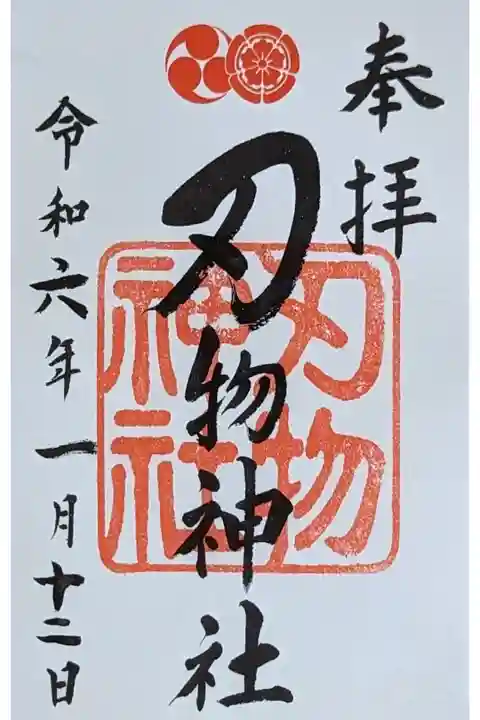 奉拝
刃物神社
刃物
神社
令和六年一月十二日